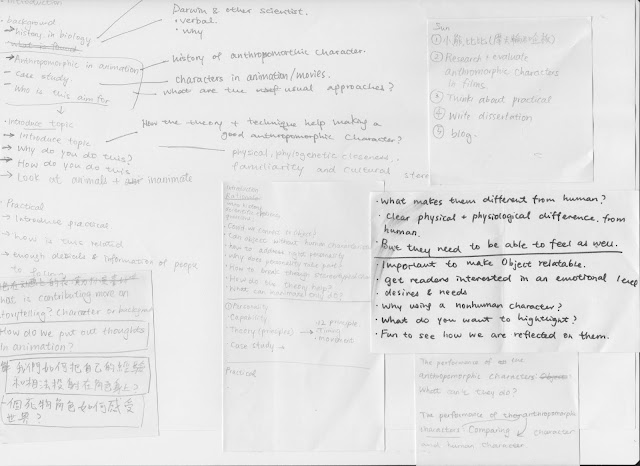 Introduction
• background
→ history in biology
Darwin & other scientist.
• verbal.
• why
→ Anthropomorphic in animation
history of anthropomorthic character.
- Case study
characters in animation/movies.
- Who is this aim for
what are the most usual approaches?
• introduce topic
→ Introduce topic
How the theory + technique help making a
good anthropomorphic character?
→ Why do you do this?
→ How do you do this
→ Look at animals + inanimate
physical, phylogenetic closeness,
familiarity and cultural
• Practical
→ Introduce practical
→ how is this related
→ enough details & information of people
Sun
①
② Research + evaluate
anthromorphic characters
in films.
③ Think about practical
④ Write dissertation
⑤ blog.
what is contributing more on
storytelling? Character or background
How do we put out thoughts
in animation?
我們如何把自己的經驗
和想法投射在角色上?
一個死物角色如何感受
世界?
Introduction
• Can object without human characteristics
• How to address
• How to break through
• How do the theory help?
• What can nonhuman do?
• Personality
- Capability
- Theory (principle) → 12 principle
→ Timing
→ movement
- Case study →
Practical
• What makes them different from human?
• Clear physical + physiological difference from
human.
• But they need to be able to feel as well.
• Important to make Object relatable.
• get readers interested in an emotional level
• desires & needs
• Why using a nonhuman character?
• What do you want to hightlight?
• Fun to see how we are reflected on them.
The performance of
anthropomorphic characters
What can't they do?
The performance of anthropomorphic
characters Comparing character
and human character